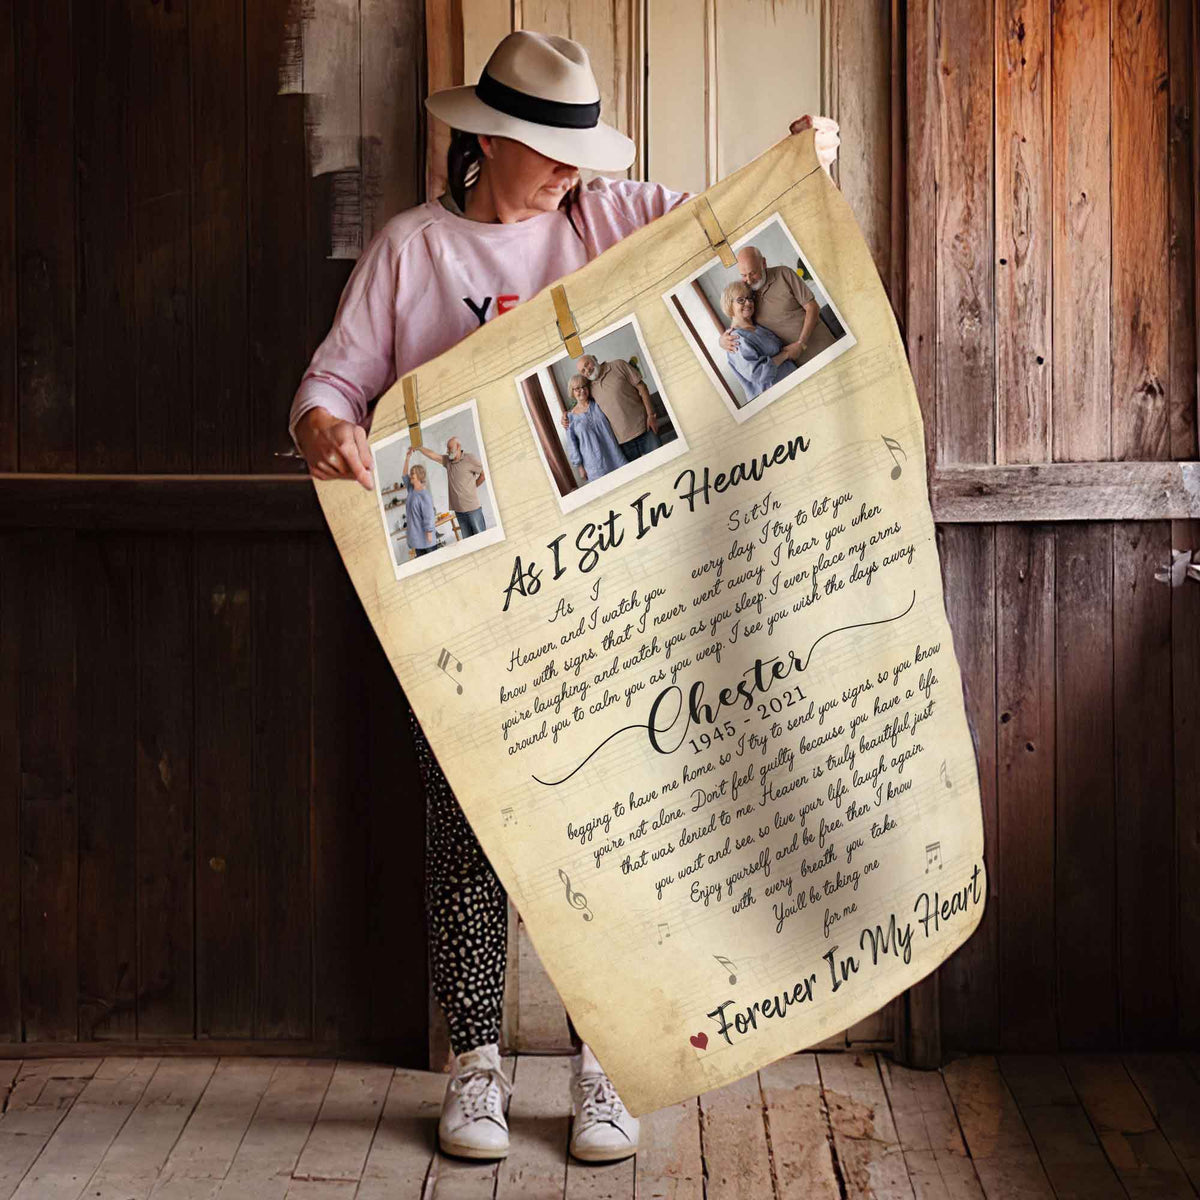 YE
As I Sit In Heaven
As I Sit In
Heaven, and I watch you every day, I try to let you
know with signs, that I never went away. I hear you when
you're laughing, and watch you as you sleep. I even place my arms
around you to calm you as you weep. I see you wish the days away
Chester
1945 - 2021
begging to have me home, so I try to send you signs, so you know
you're not alone. Don't feel guilty because you have a life,
that was denied to me. Heaven is truly beautiful, just
you wait and see, so live your life, laugh again,
Enjoy yourself and be free, then I know
with every breath you take,
You'll be taking one
for me
Forever In My Heart